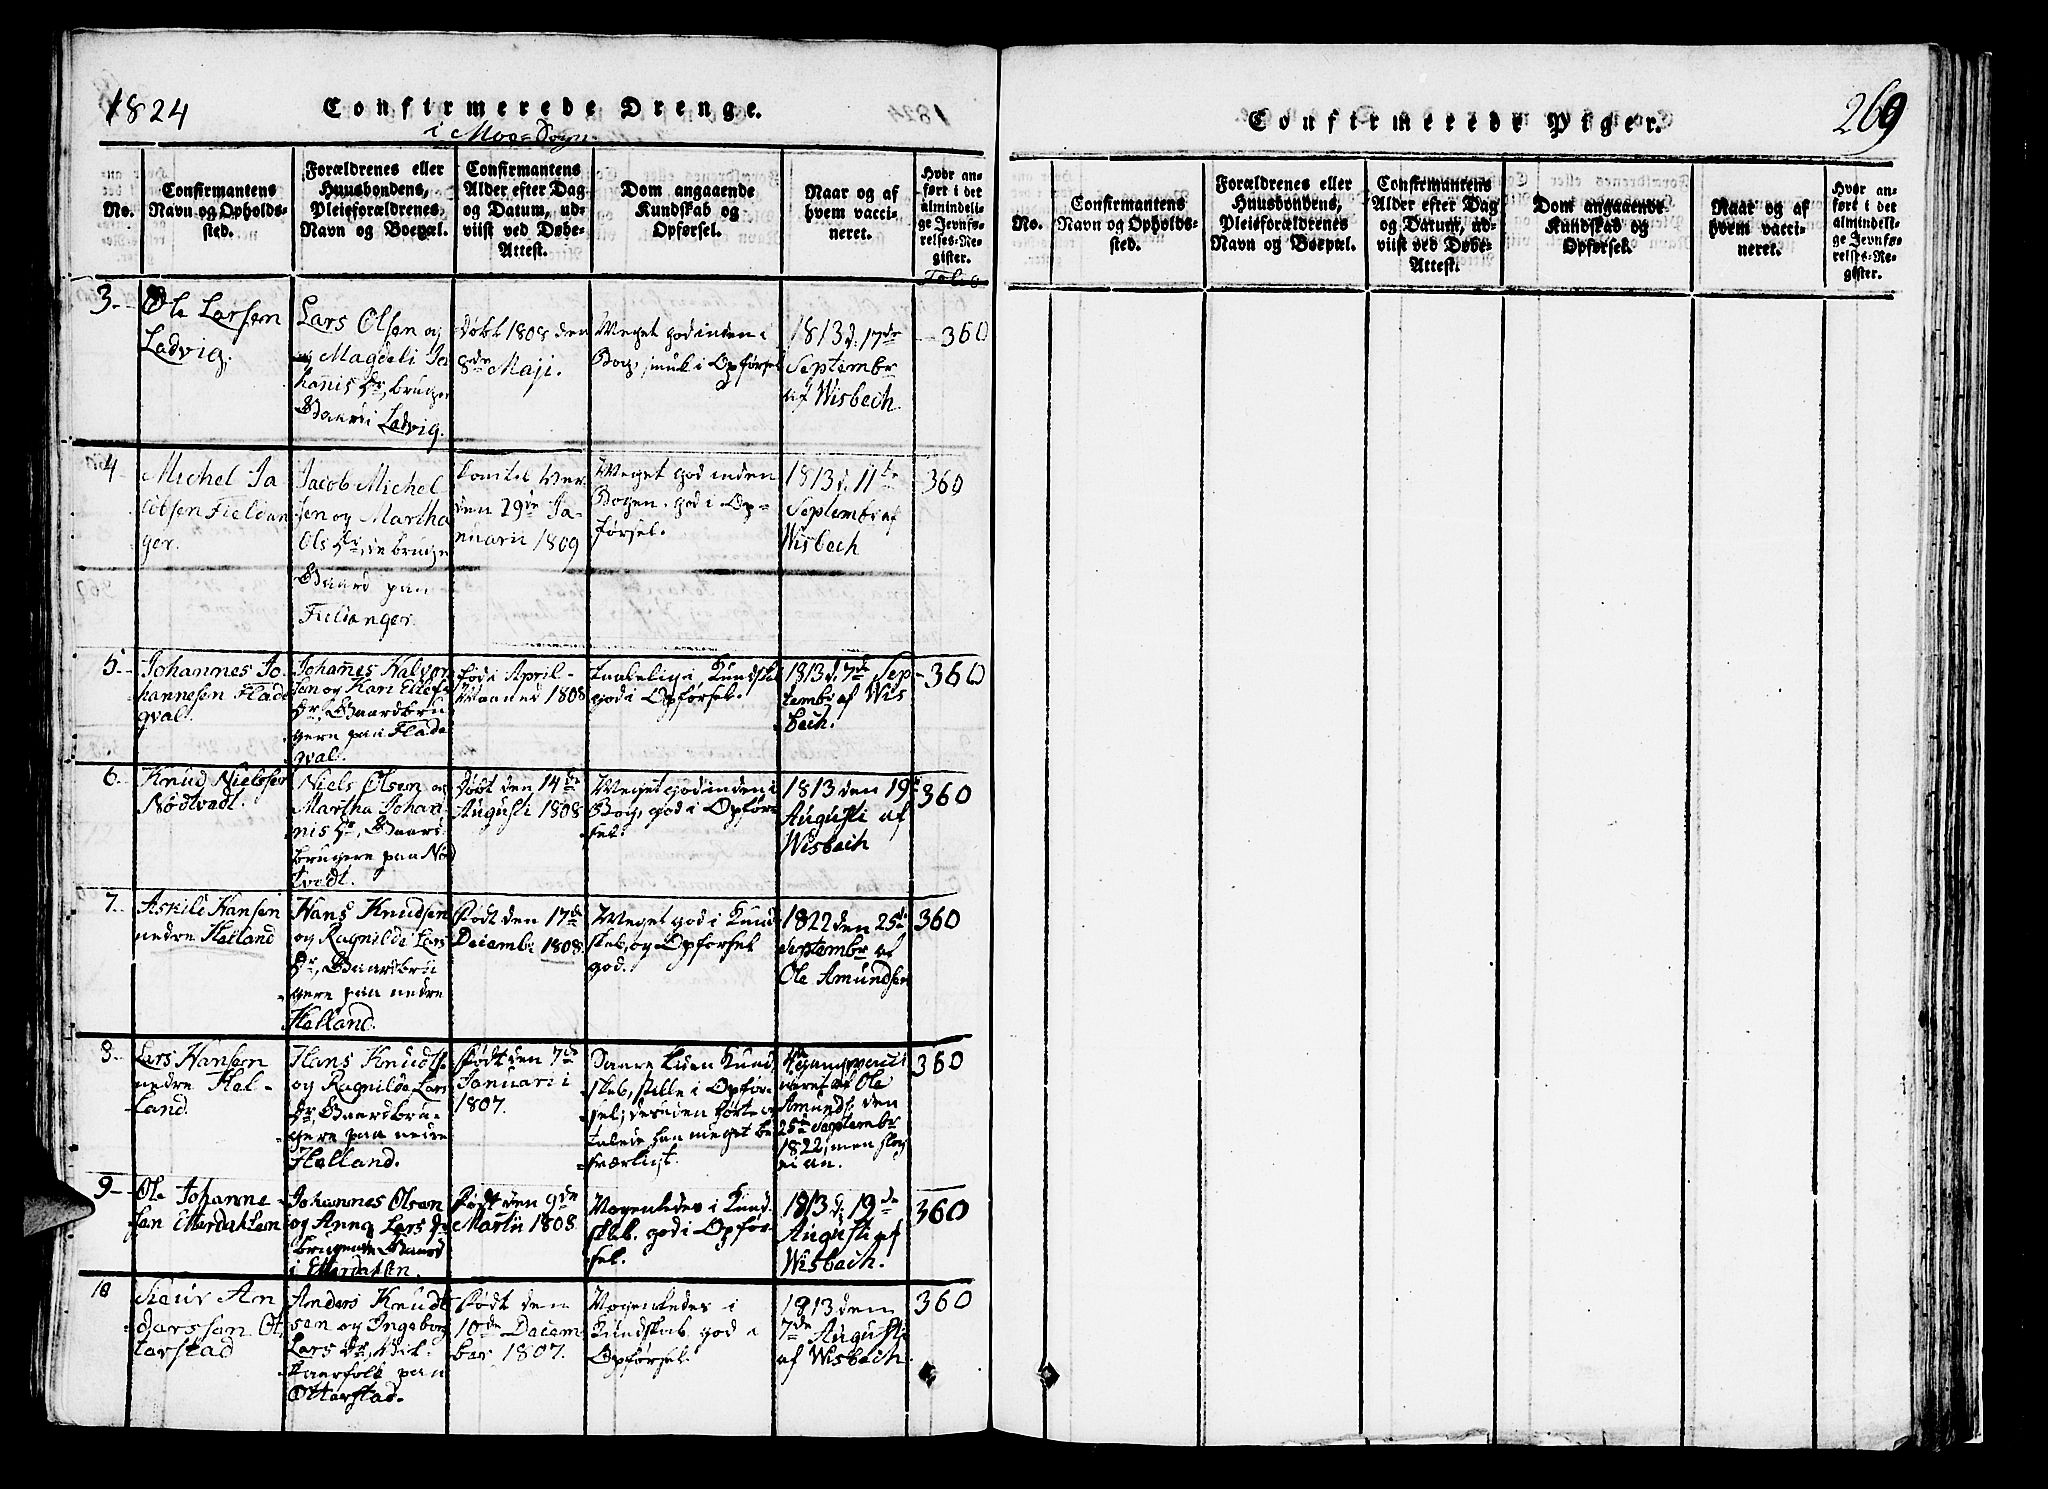 1824
Confirmerede Drenge.
i Moe Sogn.
No.
Confirmantens
Navn og Opholds-
sted.
Forældrenes eller
Huusbondens,
Pleieforældrenes,
Navn og Boepæl.
Confirmantens
Alder efter Dag
og Datum, ud-
viist ved Døbe-
Attest.
Dom angaaende
Kundskab og
Opførsel.
Naar og af
hvem vacci-
neret.
Hvor an-
ført i det
almindeli-
ge Jevnfø-
relses-Re-
gister.
Folio
3.
Ole Larsen
Ladvig.
Lars Olsen og
Magdeli Jo
hannis Dr, bruger
Gaard i Ladvig.
Døbt 1808 den
8de Maji.
Meget god inden i
Bog, smuk i Opførsel
1813 d. 17de
Septembr
af Wisbech
360
4
Michel Ja
cobsen Fieldan
ger.
Jacob Michel
sen og Martha
Ols Dr, de bruge
Gaard paa
Fieldanger.
den 29de Ja-
nuarii 1809
Meget god inden
Bogen, god i Op-
førsel.
1813 d. 11te
Septembr af
Wisbech
360
5.
Johannes Jo
hannesen Flade
qval.
Johannes Halvor
sen og Kari Ellefs
Dr, Gaardbru
gere paa Flade
qval.
fød i April
Maaned 1808
taalelig i Kundskb
god i Opførsel.
1813 d. 7de Sep
tembr af Wis
bech.
360
6.
Knud Nielssen
Nødtvedt.
Niels Olsen og
Martha Johan
nis Dr, Gaard
brugere paa Nød
tvedt.
Født den 14de
Augusti 1808
Meget god inden i
Bog, god i Opfør-
sel.
1813 den 19de
Augusti af
Wisbech
360
7.
Askild Hansen
nedre Helland
Hans Knudsen
og Ragnilde Lars
Dr, Gaardbru
gere paa nedre
Helland.
Født den 17de
Decembr 1808.
Meget god i Kund
skab, og Opførsel
god.
1822 den 25de
Septembr af
Ole Amundsen
360
8.
Lars Hansen
nedre Hel-
land.
Hans Knudts
og Ragnilde Lars
Dr, Gaardbru-
gere paa nedre
Helland.
Født den 7de
Januarii
1807.
Saare liden Kund
skab, stille i Opfør-
sel; desuden hørte og
talede han meget be
sværligt.
Amunds. den
25de Septembr
1822, men slog
ei an.
360
9.
Ole Johanne
sen Etterdalsen
Johannes Olsen
og Anna Lars Dr
brugende Gaard
i Etterdalsen.
Født den 9de
Martii 1808.
Nogenledes i Kund
skab, god i Opfør-
sel.
1813 d. 19de
Augusti af
Wisbech.
360
10
Siour An
derssen Ot
terstad
Anders Knudt
sen og Ingeborg
Lars Dr,
paa
Otterstad.
Født den
10de Decem
ber 1807.
Nogenledes i
Kundskab, god i
Opførsel.
1813 den
7de Augusti
af Wisbech.
360
Confirmerede Piger.
269
No.
Confirmantens
Navn og Opholds-
sted.
Forældrenes eller
Huusbondens,
Pleieforældrenes
Navn og Boepæl.
Confirmantens
Alder efter Dag
og Datum, ud-
viist ved Døbe-
Attest.
Dom angaaende
Kundskab og
Opførsel.
Naar og af
hvem vacci-
neret.
Hvor an-
ført i det
almindeli-
ge Jevnfø-
relses-Re-
gister.